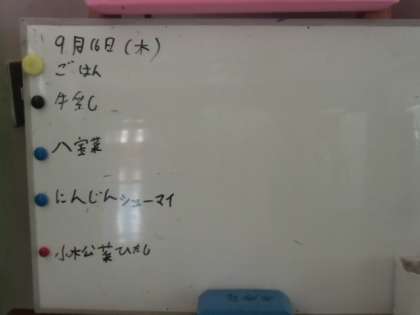 9月16日(木)
ごはん
牛乳
八宝菜
にんじんシューマイ
小松菜ひたし